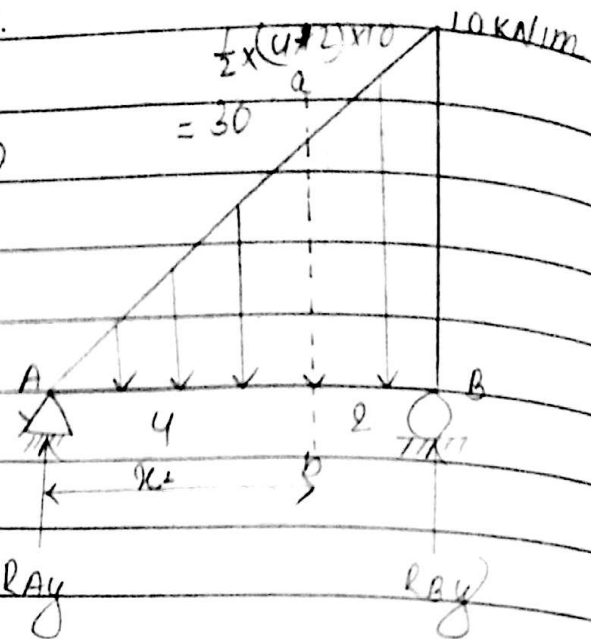 ½×(4+2)×10
10KN/m
a
= 30
A
B
4
2
x
RAy
RBy